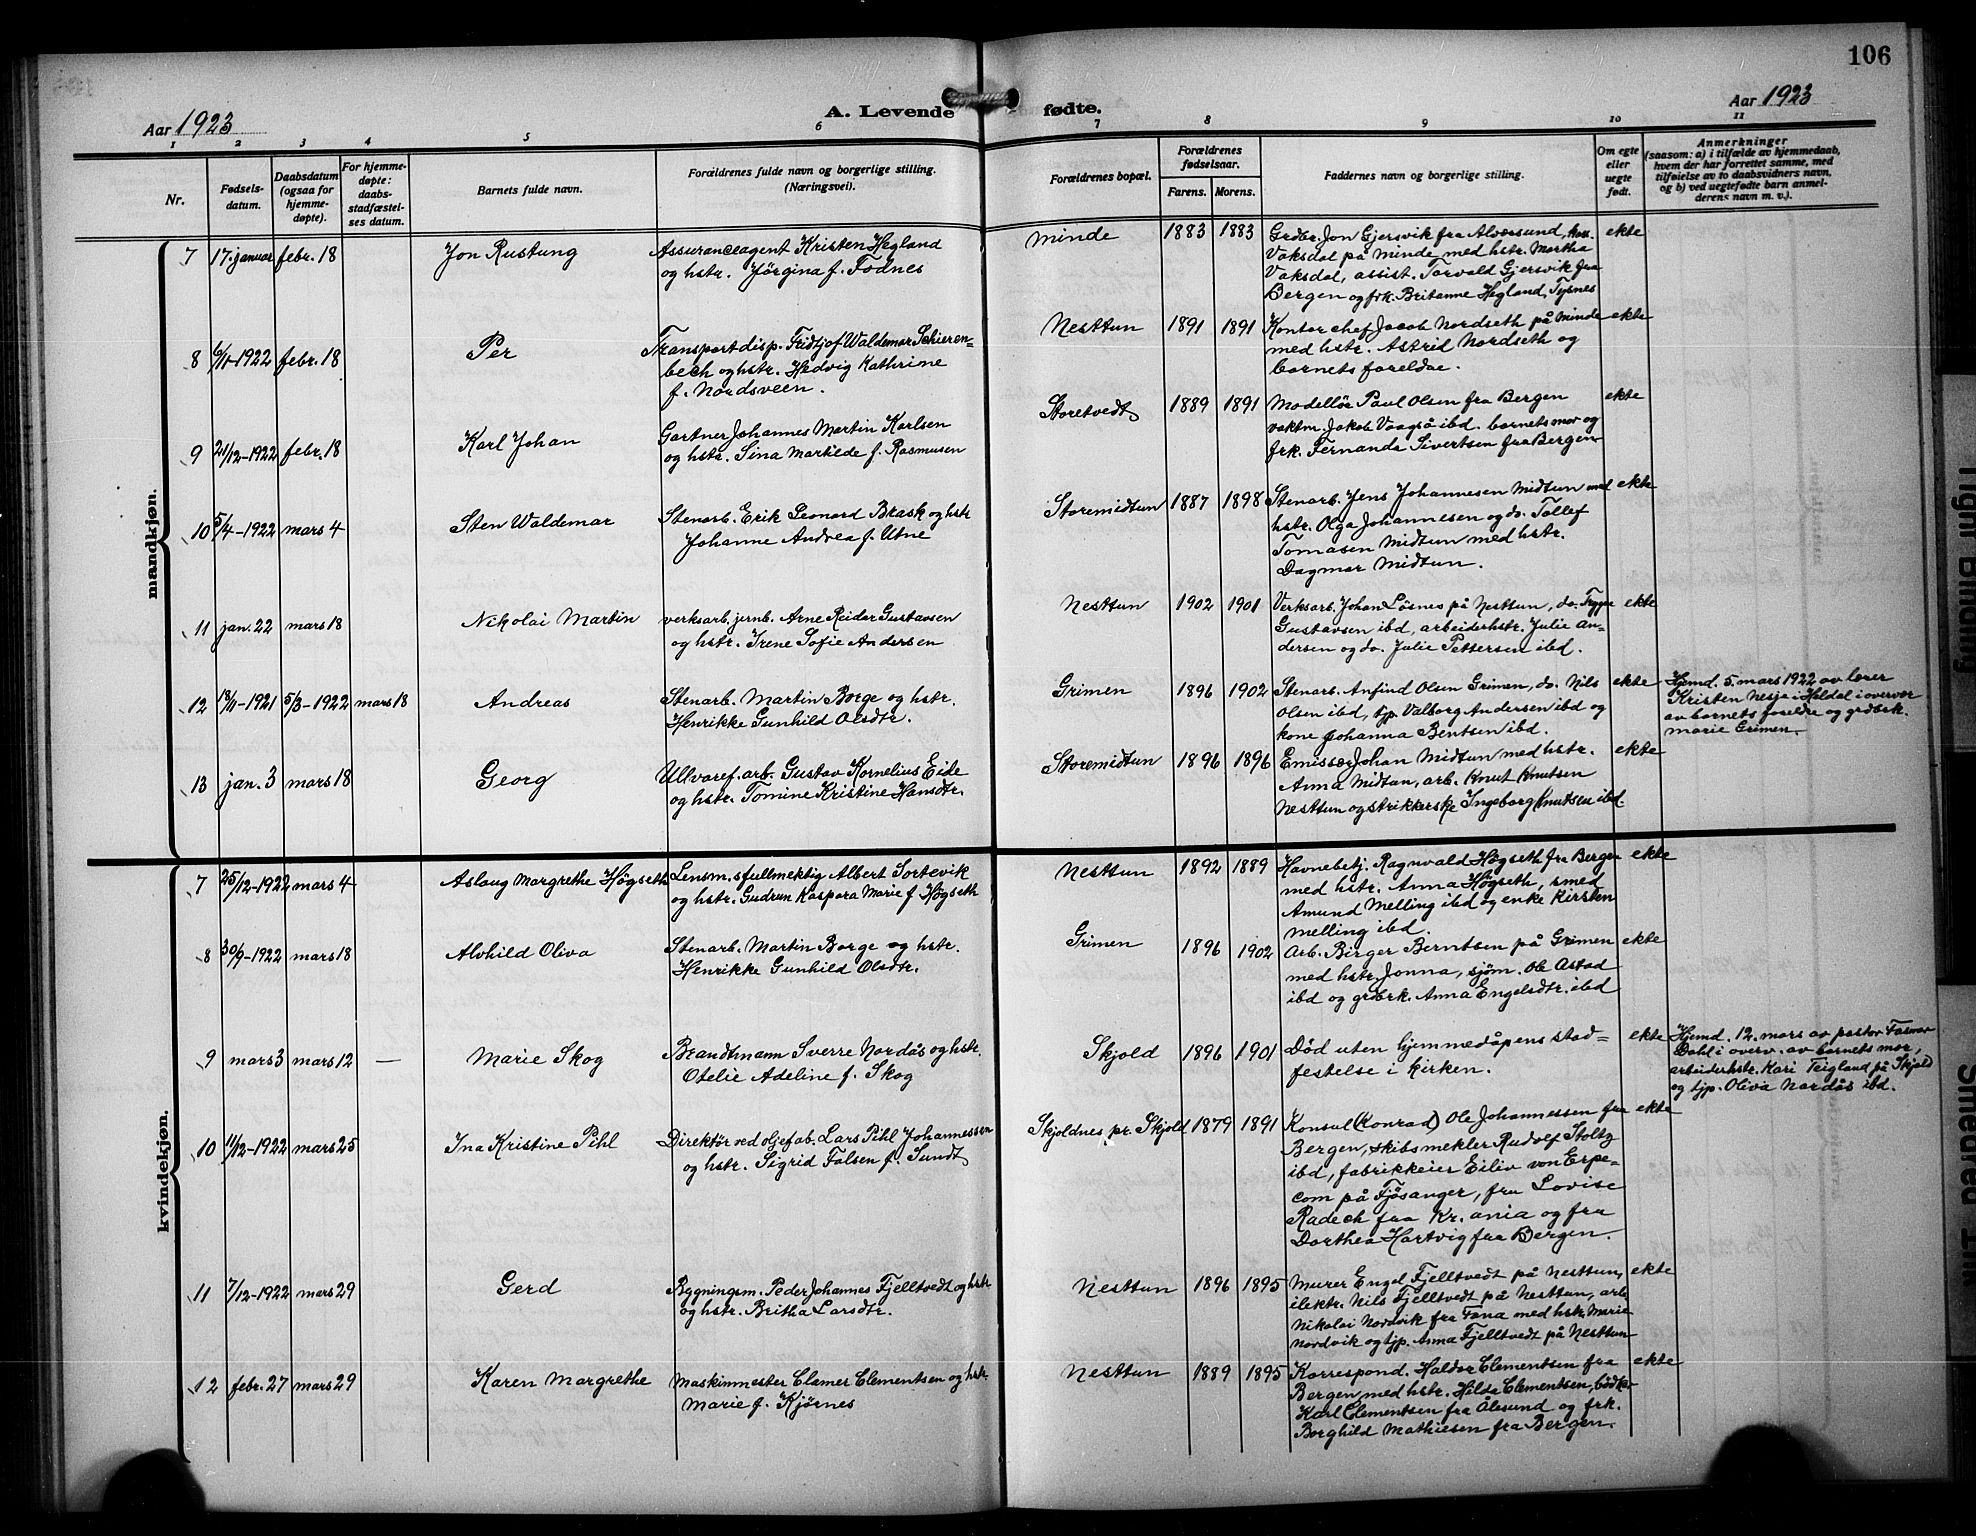 106
Aar 1923
A. Levende fødte.
Aar 1923
1 2 3 4 5 6 7 8 9 10 11
Nr.
Fødsels-
datum.
Daabsdatum
(ogsaa for
hjemme-
døpte).
For hjemme-
døpte:
daabs-
stadfæstel-
ses datum.
Barnets fulde navn.
Forældrenes fulde navn og borgerlige stilling.
(Næringsvei).
Forældrenes bopæl.
Forældrenes
fødselsaar.
Farens. Morens.
Faddernes navn og borgerlige stilling.
Om egte
eller
uegte
født.
Anmerkninger
(saasom: a) i tilfælde av hjemmedaab,
hvem der har forrettet samme, med
tilføielse av to daabsvidners navn,
og b) ved uegtefødte barn anmel-
derens navn m. v.).
mandkjøn.
7 17. januar febr. 18 Jon Rustung
Assuranceagent Kristen Hegland
og hstr. Jørgina f. Fodnes
Minde 1883 1883
Grdbr. Jon Gjersvik fra Alversund,
Vaksdal på Minde med hstr. Martha
Vaksdal, assist. Torvald Gjersvik fra
Bergen og frk. Britanne Hegland, Tysnes
ekte
8 6/11-1922 febr. 18 Per
Transportdisp. Fridtjof Waldemar Schieren=
bech og hstr. Hedvig Kathrine
f. Nordsveen.
Nesttun 1891 1891
Kontorchef Jacob Nordseth på Minde
med hstr. Astrid Nordseth og
barnets foreldre.
ekte
9 21/12-1922 febr. 18 Karl Johan
Gartner Johannes Martin Karlsen
og hstr. Sina Martilde f. Rasmusen
Storetvedt 1889 1891
Modellør Paul Olsen fra Bergen
vaktm. Jakob Vaagsö ibd. barnets mor og
frk. Fernanda Sivertsen fra Bergen
ekte
10 5/4-1922 mars 4 Sten Waldemar
Stenarb. Erik Leonard Brask og hstr
Johanne Andrea f. Utne
Storemidtun 1887 1898
Stenarb. Jens Johannesen Midtun med
hstr. Olga Johannesen og do. Tollef
Tomasen Midtun med hstr.
Dagmar Midtun.
ekte
11 jan. 22 mars 18 Nikolai Martin
verksarb. jernb. Arne Reidar Gustavsen
og hstr. Irene Sofie Andersen
Nesttun 1902 1901
Verksarb. Johan Løsnes på Nesttun, do.
Gustavsen ibd, arbeiderhstr. Julie An=
dersen og do. Julie Pettersen ibd.
ekte
12 18/11-1921 5/3-1922 mars 18 Andreas
Stenarb. Martin Borge og hstr.
Henrikke Gunhild Olsdtr.
Grimen 1896 1902
Stenarb. Anfind Olsen Grimen, do. Nils
Olsen ibd, tjp. Valborg Andersen ibd og
kone Johanna Bentsen ibd.
ekte
Hjemd. 5. mars 1922 av lærer
Kristen Nesja i Haldal i overvær
av barnets foreldre og grdbrk.
Marie Grimen.
13 jan. 3 mars 18 Georg
Ullvaref. arb. Gustav Kornelius Eide
og hstr. Tomine Kristine Hansdtr.
Storemidtun 1896 1896
Emissær Johan Midtun med hstr.
Anna Midtun, arb. Knut Knutsen
Nesttun og strikkerske Ingeborg Knutsen ibd.
ekte
kvindekjøn.
7 25/12-1922 mars 4 Aslaug Margrethe Høgseth
Lensm.sfullmektig Albert Sortevik
og hstr. Gudrun Kaspara Marie f Høgseth
Nesttun 1892 1889
Havnebetj. Ragnvald Høgseth fra Bergen
med hstr. Anna Høgseth, smed
Amund Melling ibd og enke Kirsten
Melling ibd.
ekte
8 30/9-1922 mars 18 Alvhild Oliva
Stenarb. Martin Borge og hstr.
Henrikke Gunhild Olsdtr.
Grimen 1896 1902
Arb. Birger Berntsen på Grimen
med hstr. Jonna, sjøm. Ole Astad
ibd og grdbrk. Anna Engelsdtr. ibd
ekte
9 mars 3 mars 12 — Marie Skog
Brandtmann Sverre Nordås og hstr.
Otelie Adeline f. Skog
Skjold 1896 1901
Död uten hjemmedåpens stad=
festelse i kirken.
ekte
Hjemd. 12. mars av pastor
Dahl i overv. av barnets mor,
arbeiderhstr. Kari Teigland på Skjold
og tjp. Oliva Nordås ibd.
10 11/12-1922 mars 25 Ina Kristine Pihl
Direktør ved oljefab. Lars Pihl Johannessen
og hstr. Sigrid Falsen f. Sundt
Skjoldnes pr. Skjold 1879 1891
Konsul (Konrad) Ole Johannessen fra
Bergen, skibsmekler Rudolf Stoltz
ibd, fabrikkeier Eiliv von Erpe=
com på Fjøsanger, fru Lovise
Radech fra Kr.ania og fru
Dorthea Hartvig fra Bergen.
ekte
11 7/12-1922 mars 29 Gerd
Bygningsm. Peder Johannes Fjelltvedt og hstr
og hstr. Britha Larsdtr.
Nesttun 1896 1895
Murer Engel Fjelltvedt på Nesttun,
elektr. Nils Fjelltvedt på Nesttun, arb.
Nikolai Nordvik fra Fana med hstr. Marie
Nordvik og tjp. Anna Fjelltvedt på Nesttun
ekte
12 febr. 27 mars 29 Karen Margrethe
Maskinmester Clamer Clementsen og hstr
Marie f. Kjørnes
Nesttun 1889 1895
Korrespond. Haldor Clementsen fra
Bergen med hstr. Hilda Clementsen, bödker
Karl Clementsen fra Ålesund og frk.
Borghild Mathiesen fra Bergen.
ekte
Tight Binding
Smeared Ink